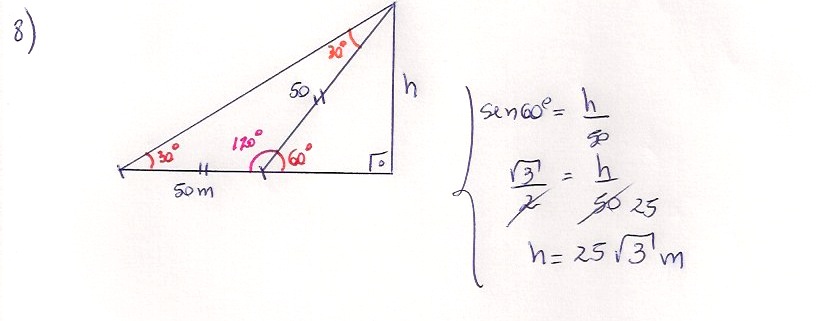 8)
30°
50
h
30°
120°
60°
50 m
sen60° = h/50
√3/2 = h/50 25
h = 25√3 m